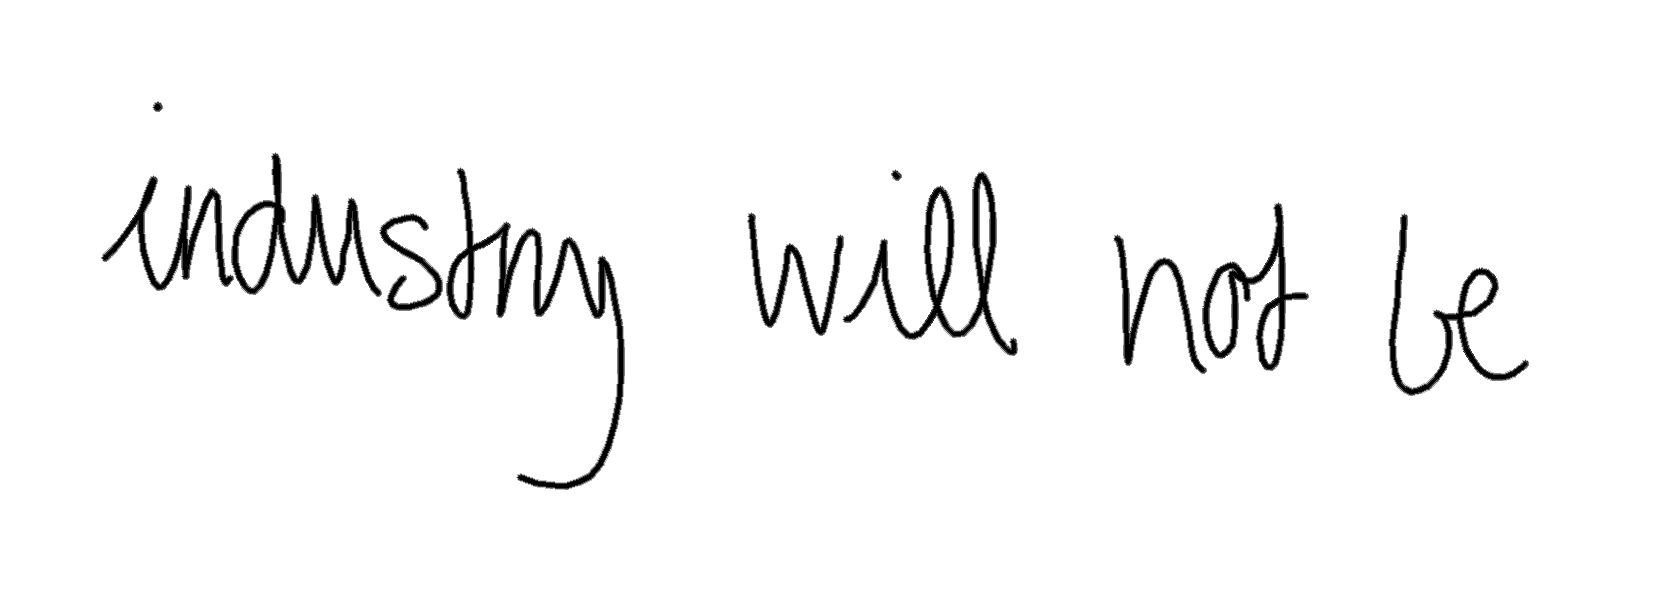 industry will not be